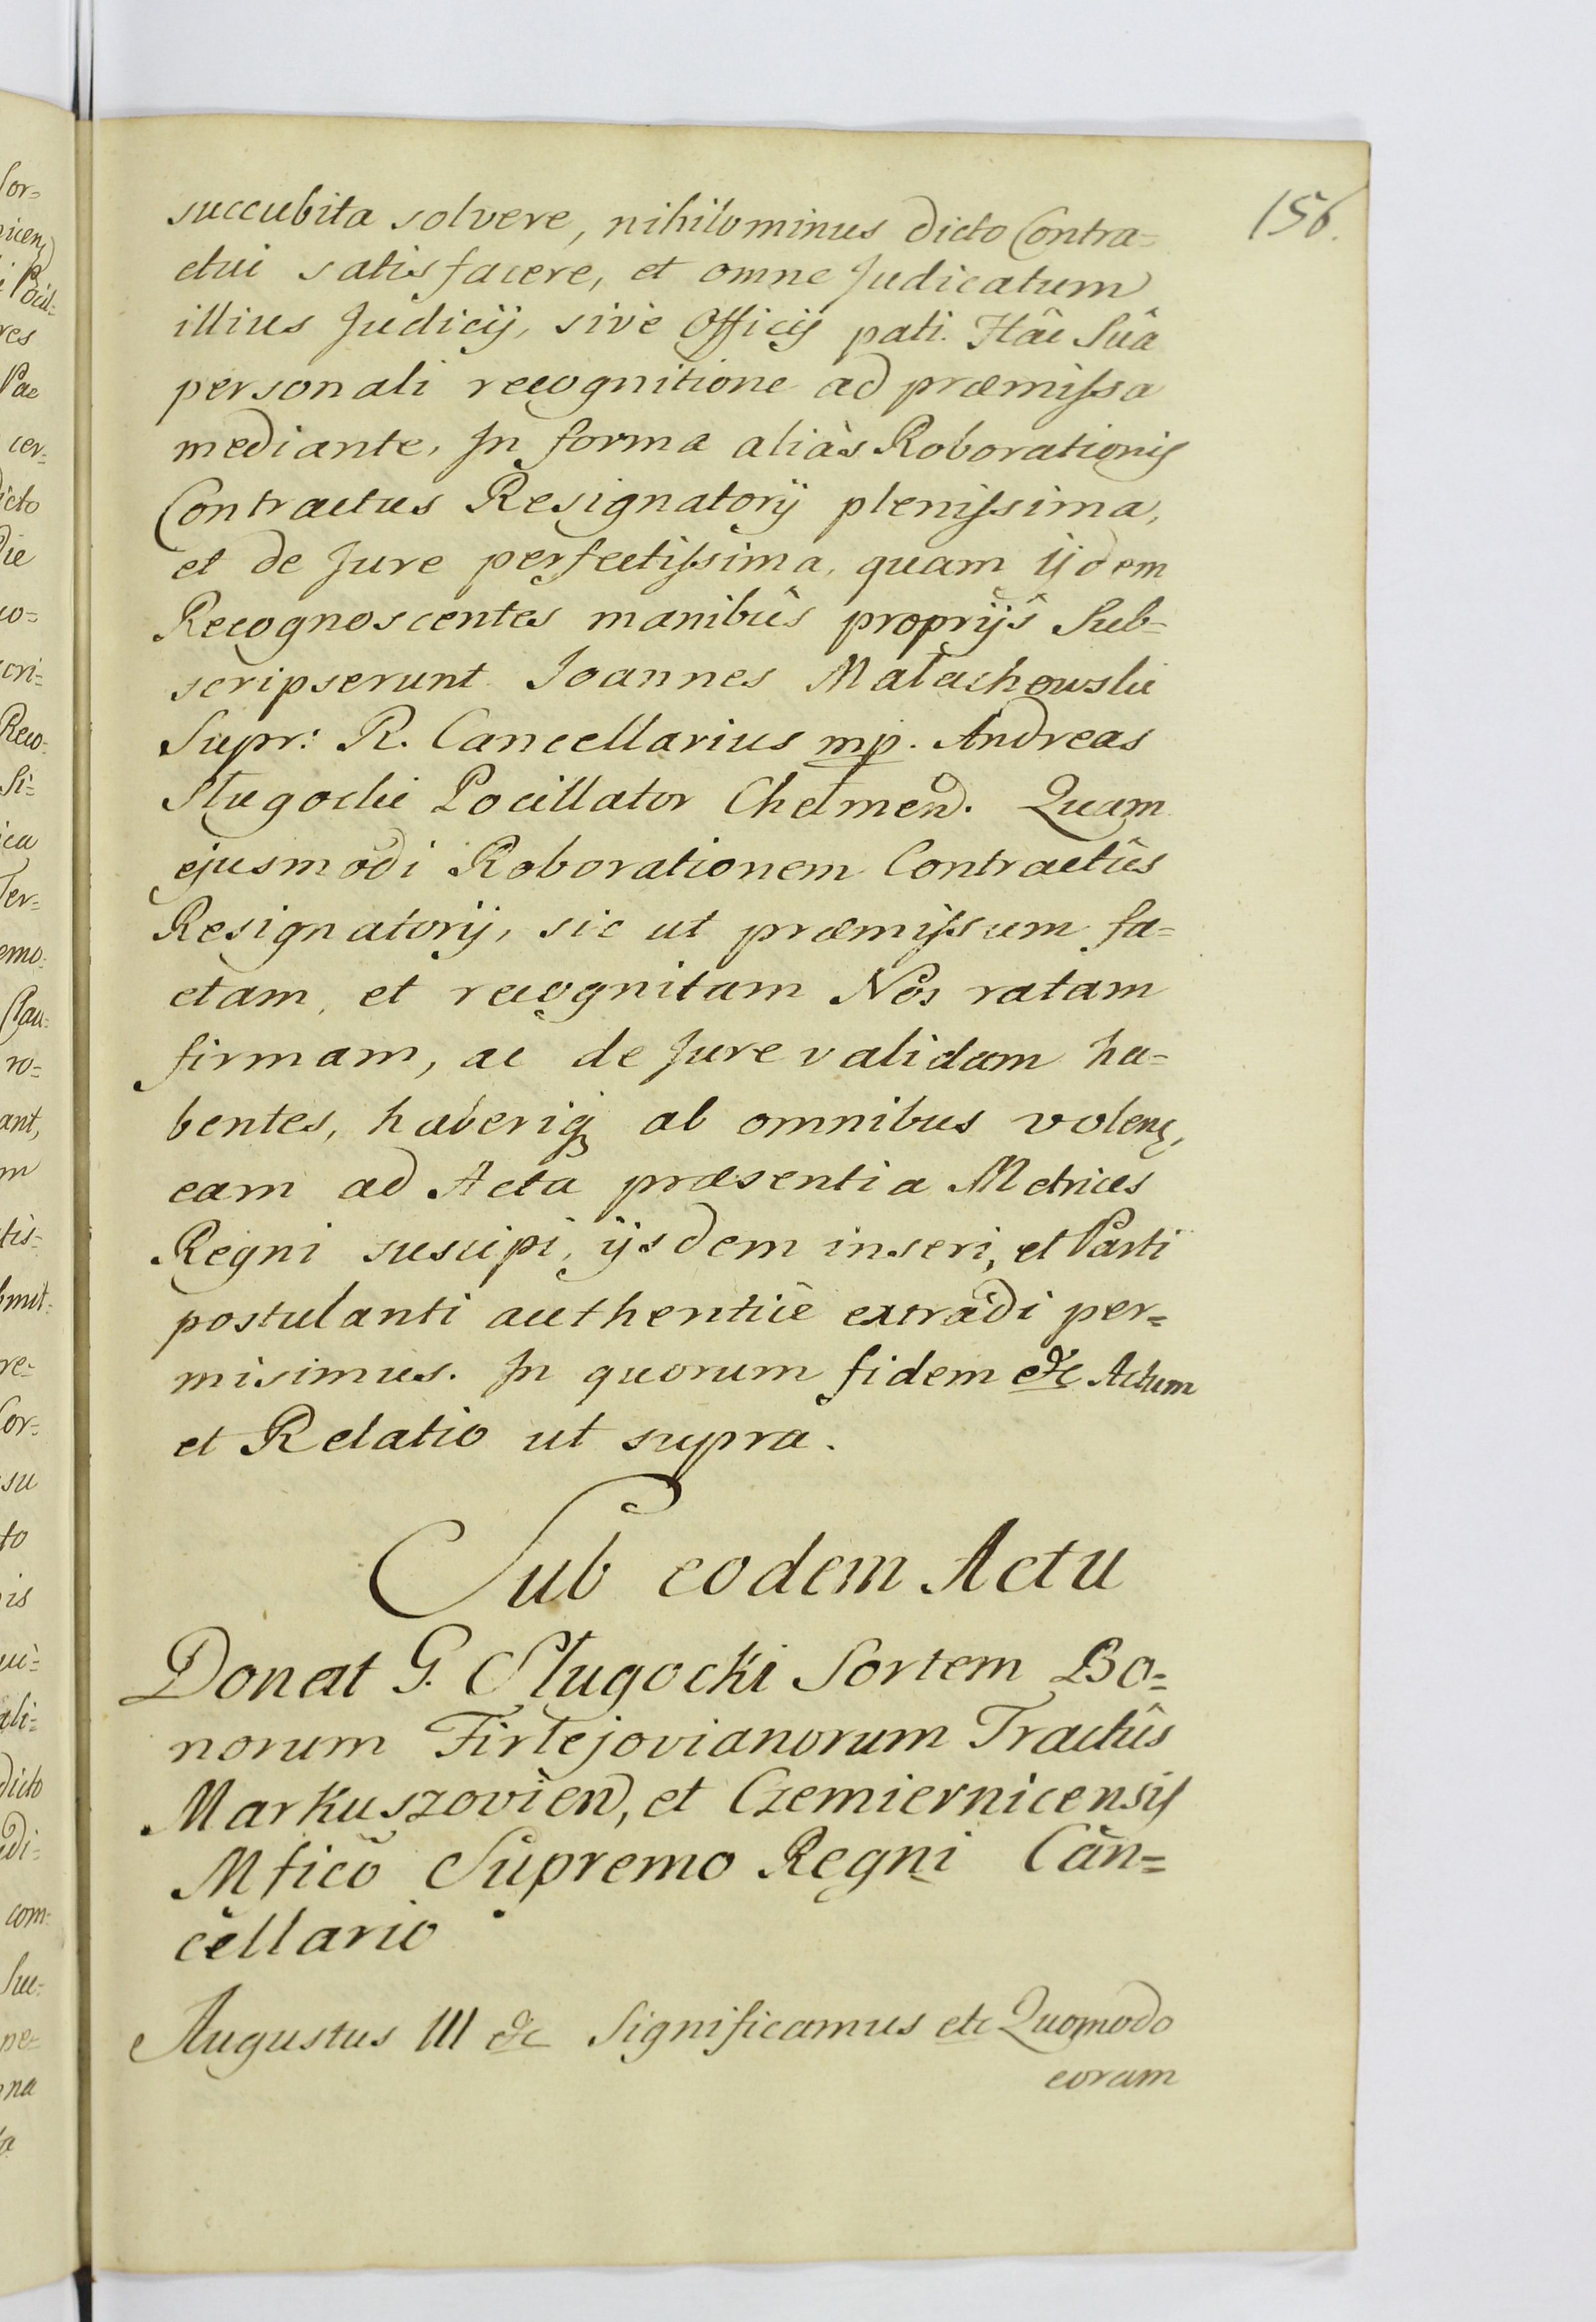 156.
succubita solvere, nihilominus dicto Contra=
ctui satisfacere, et omne Judicatum
illius Judicij, sivè Officij pati. Hâc Suâ
personali recognitione ad præmissa
mediante, In forma aliàs Roborationis
Contractus Resignatorij plenissima,
et de Jure perfectissima, quam ijdem
Recognoscentes manibûs proprijs Sub=
scripserunt Joannes Małachowski
Supr: R. Cancellarius mp. Andreas
Sługocki Pocillator Chełmen. Quam
ejusmodi Roborationem Contractûs
Resignatorij, sic ut præmissum fa=
ctam, et recognitam Nos ratam
firmam, ac de Jure validam ha=
bentes, haberiq ab omnibus volen,
eam ad Acta præsentia Metrices
Regni suscipi, ijsdem inseri, et Parti
postulanti authenticè extradi per=
misimus. In quorum fidem &c Actum
et Relatio ut supra.
Sub eodem Actu
Donat G. Sługocki Sortem Bo=
norum Firlejovianorum Tractûs
Markuszovien, et Czemiernicensis
Mfico Supremo Regni Can=
cellario
Augustus III &c Significamus etc Quomodo
coram